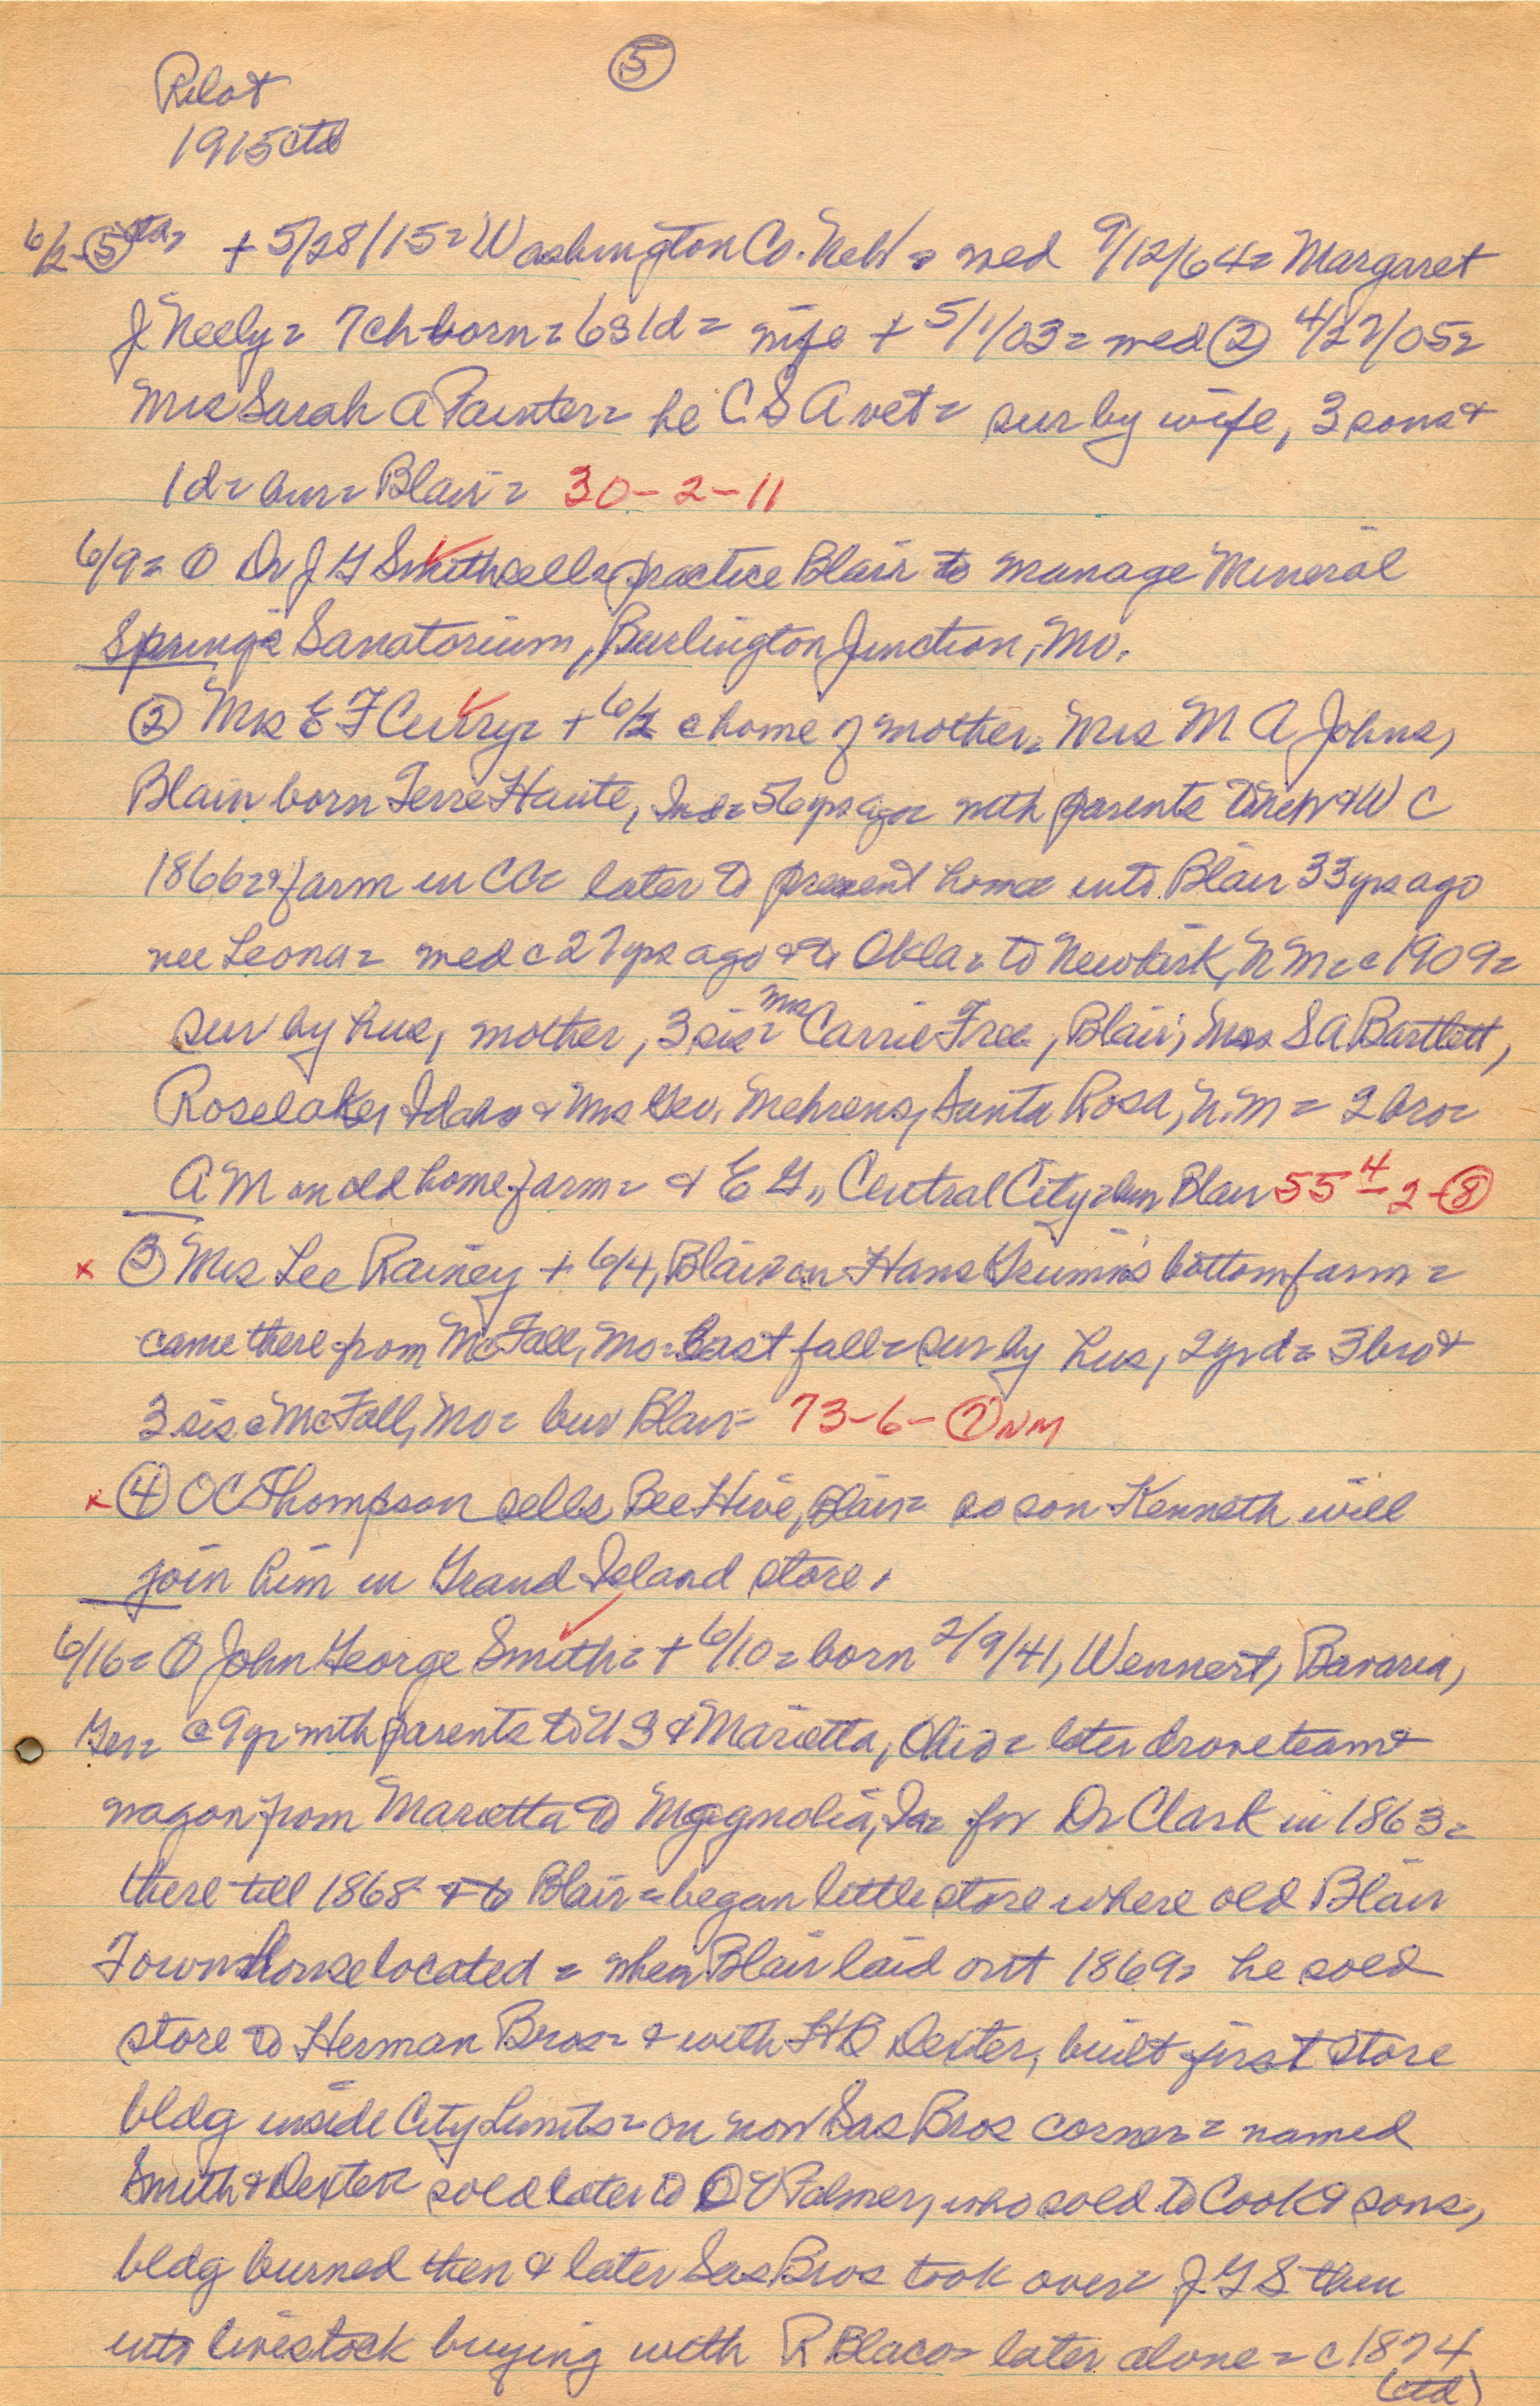 5
Pilot
1915 ctd
6/2 - 5 ctd = + 5/28/15 = Washington Co. Neb = med 9/12/64 = Margaret
J Neely = 7 ch born = 6s 1d = wife + 5/1/03 = med 2 4/27/05 =
Mrs Sarah A Painter = he C S A vet = sur by wife, 3 sons &
1 d = bur = Blair = 30-2-11
6/9 = 1 Dr J G Smith sells practice Blair to manage Mineral
Springs Sanatorium, Burlington Junction, Mo.
2 Mrs E F Curry = + 6/2 @ home of mother = Mrs M A Johns,
Blair = born Terre Haute, Ind = 56 yrs ago = with parents to Neb & W C
1866 = & farm in CC = later to present home into Blair 33 yrs ago
nee Leona = med c 27 yrs ago & to Okla = to Newkirk, N M = c 1909 =
sur by hus, mother, 3 sis = Mrs Carrie Free, Blair, Mrs S A Bartlett,
Roselake, Idaho & Mrs Geo. Mehrens, Santa Rosa, N. M = 2 bro =
A M on old home farm = & E G., Central City = bur Blair 55 4 - 2 - 8
x 3 Mrs Lee Rainey + 6/4, Blair = on Hans Grimm's bottom farm =
came there from McFall, Mo = last fall = sur by hus, 2 yr d = 3 bro &
3 sis @ McFall, Mo = bur Blair = 73-6-7 NM
x 4 O C Thompson sells Bee Hive, Blair = so son Kenneth will
join him in Grand Island store.
6/16 = 1 John George Smith = + 6/10 = born 2/9/41, Wennert, Bavaria,
Ger = @ 9 yr with parents to U S & Marietta, Ohio = later drove team &
wagon from Marietta to Magnolia, Ia = for Dr Clark in 1863 =
there till 1868 & to Blair = began little store where old Blair
Town House located = when Blair laid out 1869 = he sold
store to Herman Bros = & with H B Dexter, built first store
bldg inside City Limits = on now Sas Bros corner = named
Smith & Dexter sold later to O V Palmer, who sold to Cook & sons,
bldg burned then & later Sas Bros took over = J G S then
into livestock buying with R Blaco = later alone = c 1874
(ctd)